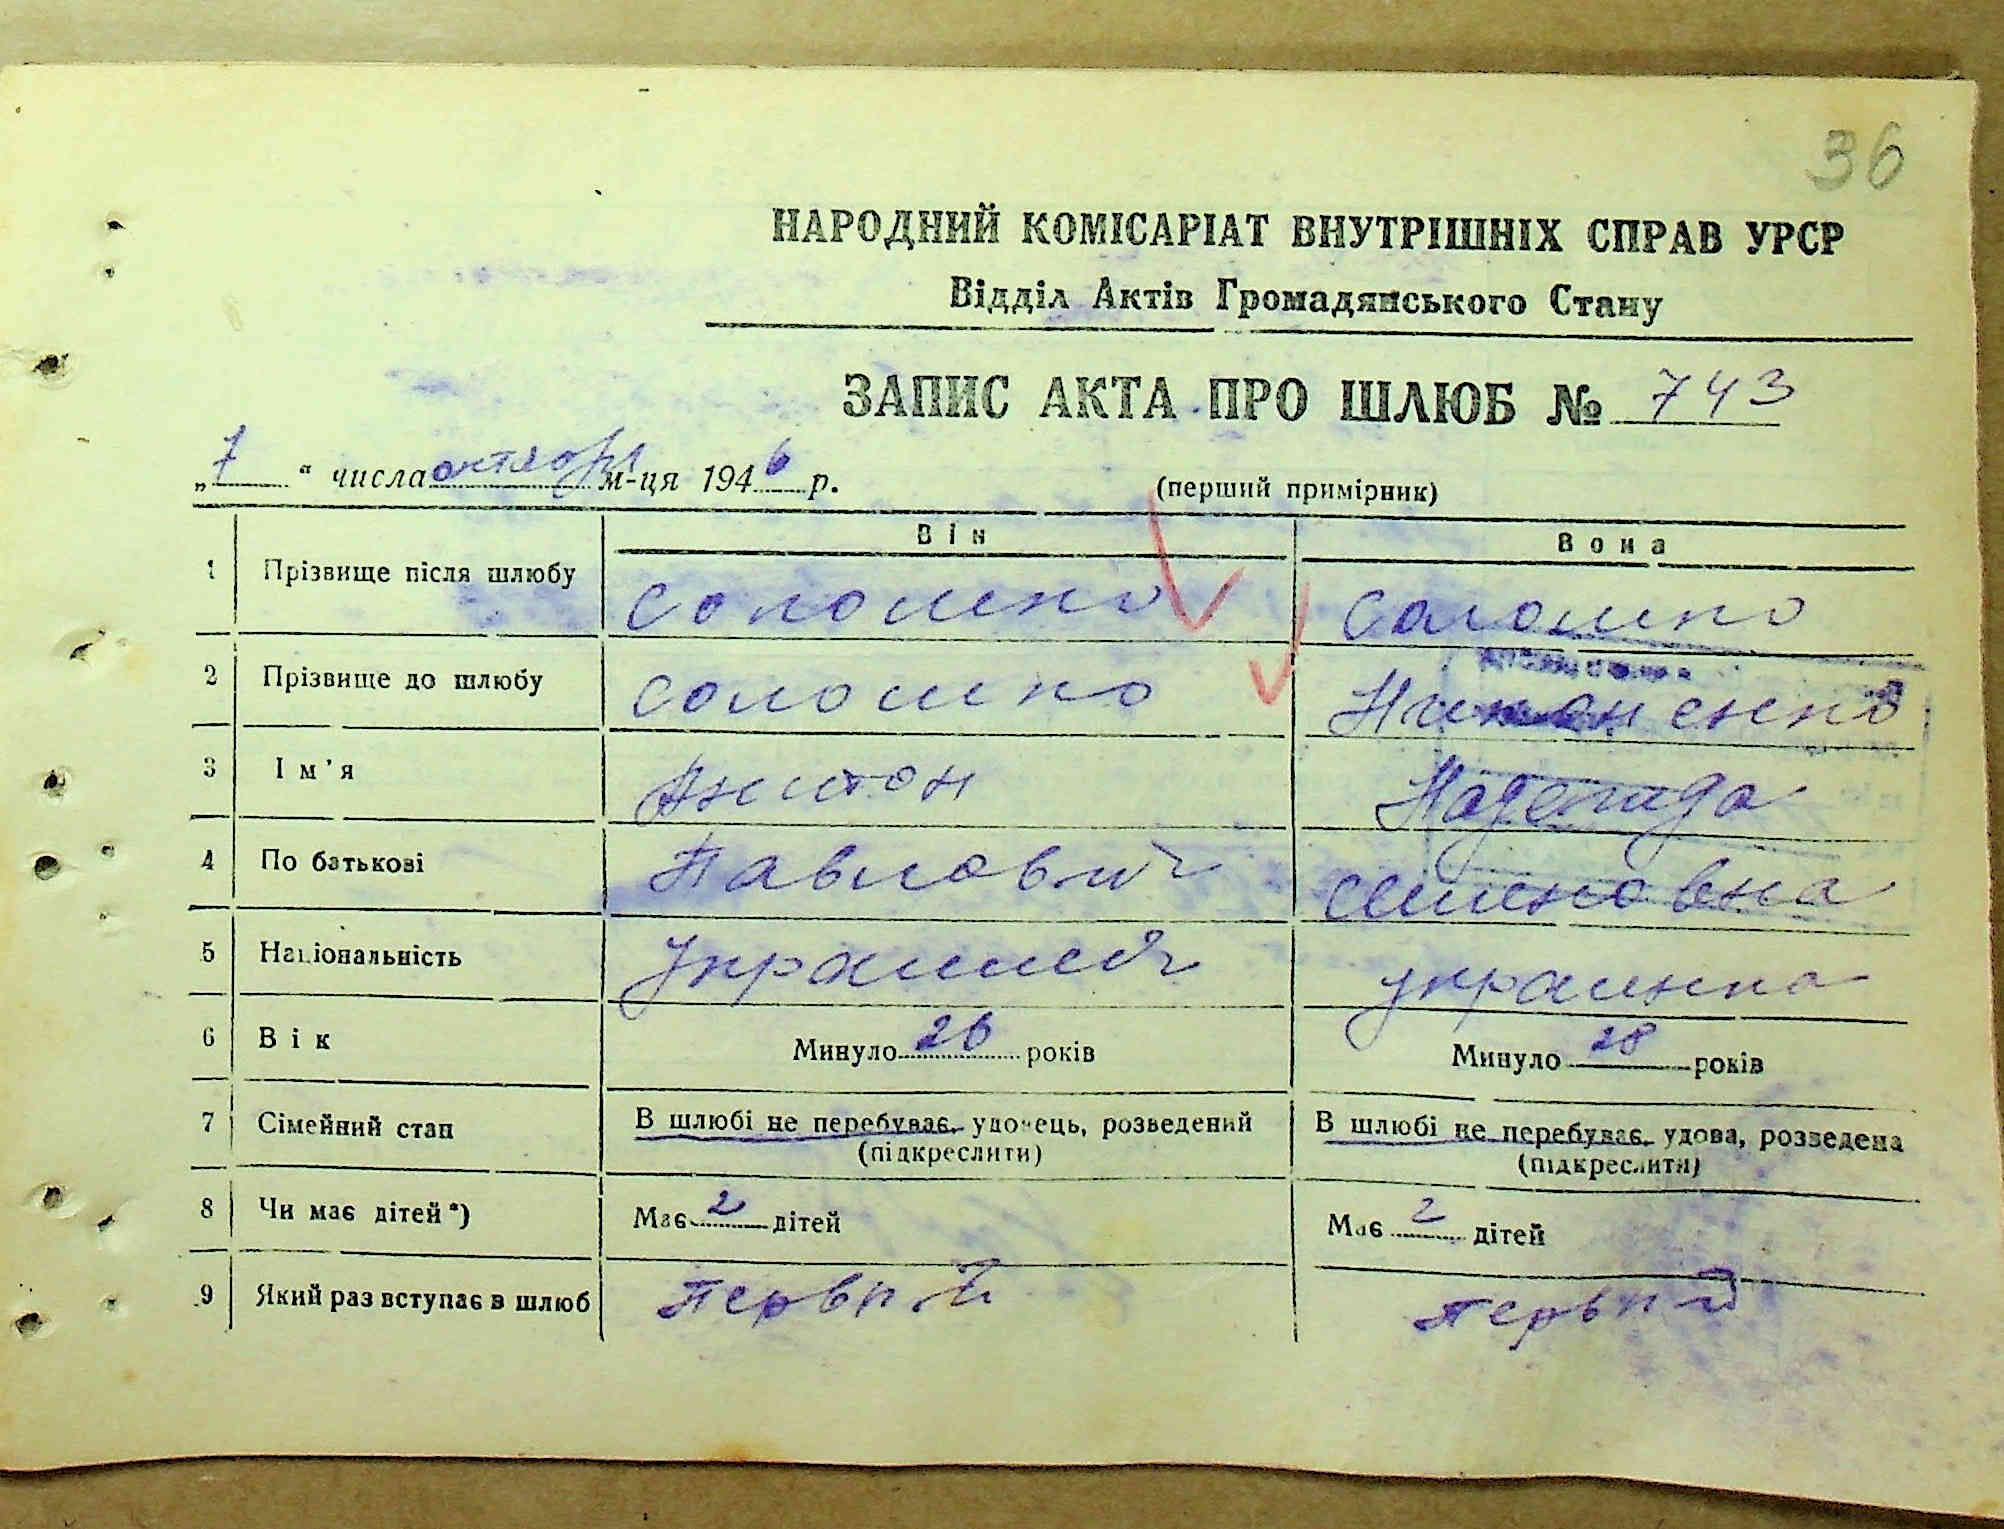 36
НАРОДНИЙ КОМІСАРІАТ ВНУТРІШНІХ СПРАВ УРСР
Відділ Актів Громадянського Стану
ЗАПИС АКТА ПРО ШЛЮБ № 743
„7“ числа октября м-ця 1946 р. (перший примірник)
Він Вона
1 Прізвище після шлюбу Соломко Соломко
2 Прізвище до шлюбу Соломко Никоненко
3 Ім'я Антон Надежда
4 По батькові Павлович Семеновна
5 Національність Украинец украинка
6 Вік Минуло 26 років Минуло 28 років
7 Сімейний стан В шлюбі не перебуває, удовець, розведений В шлюбі не перебуває, удова, розведена
(підкреслити) (підкреслити)
8 Чи має дітей*) Має 2 дітей Має 2 дітей
9 Який раз вступає в шлюб Первый первый